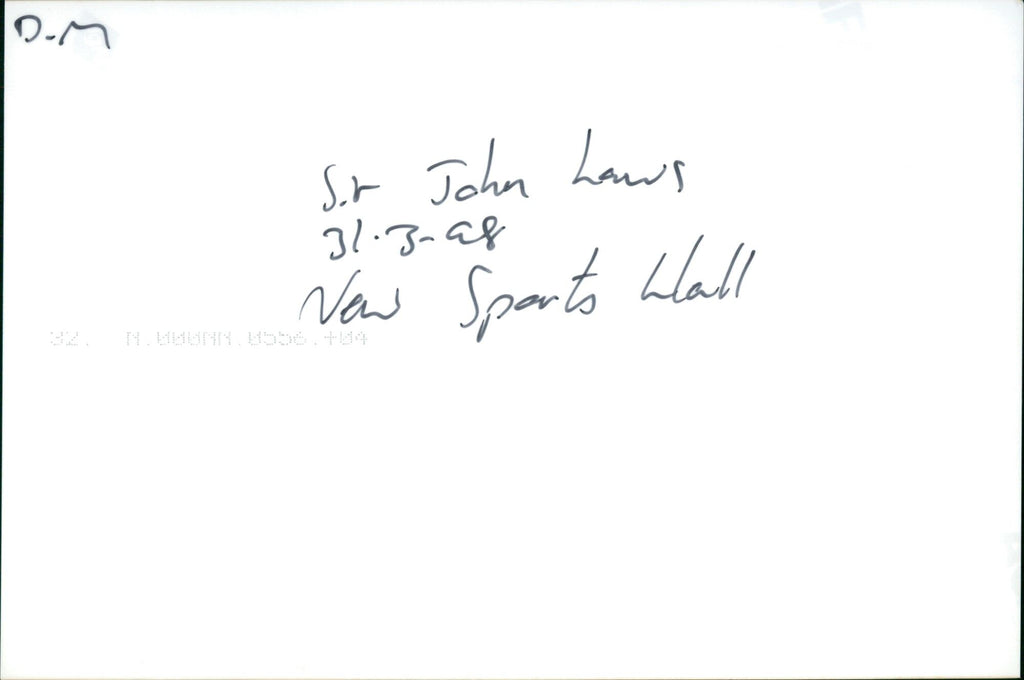 D-M
Sir John Laws
31-3-98
New Sports Hall
32. N.000NN.0556.+04